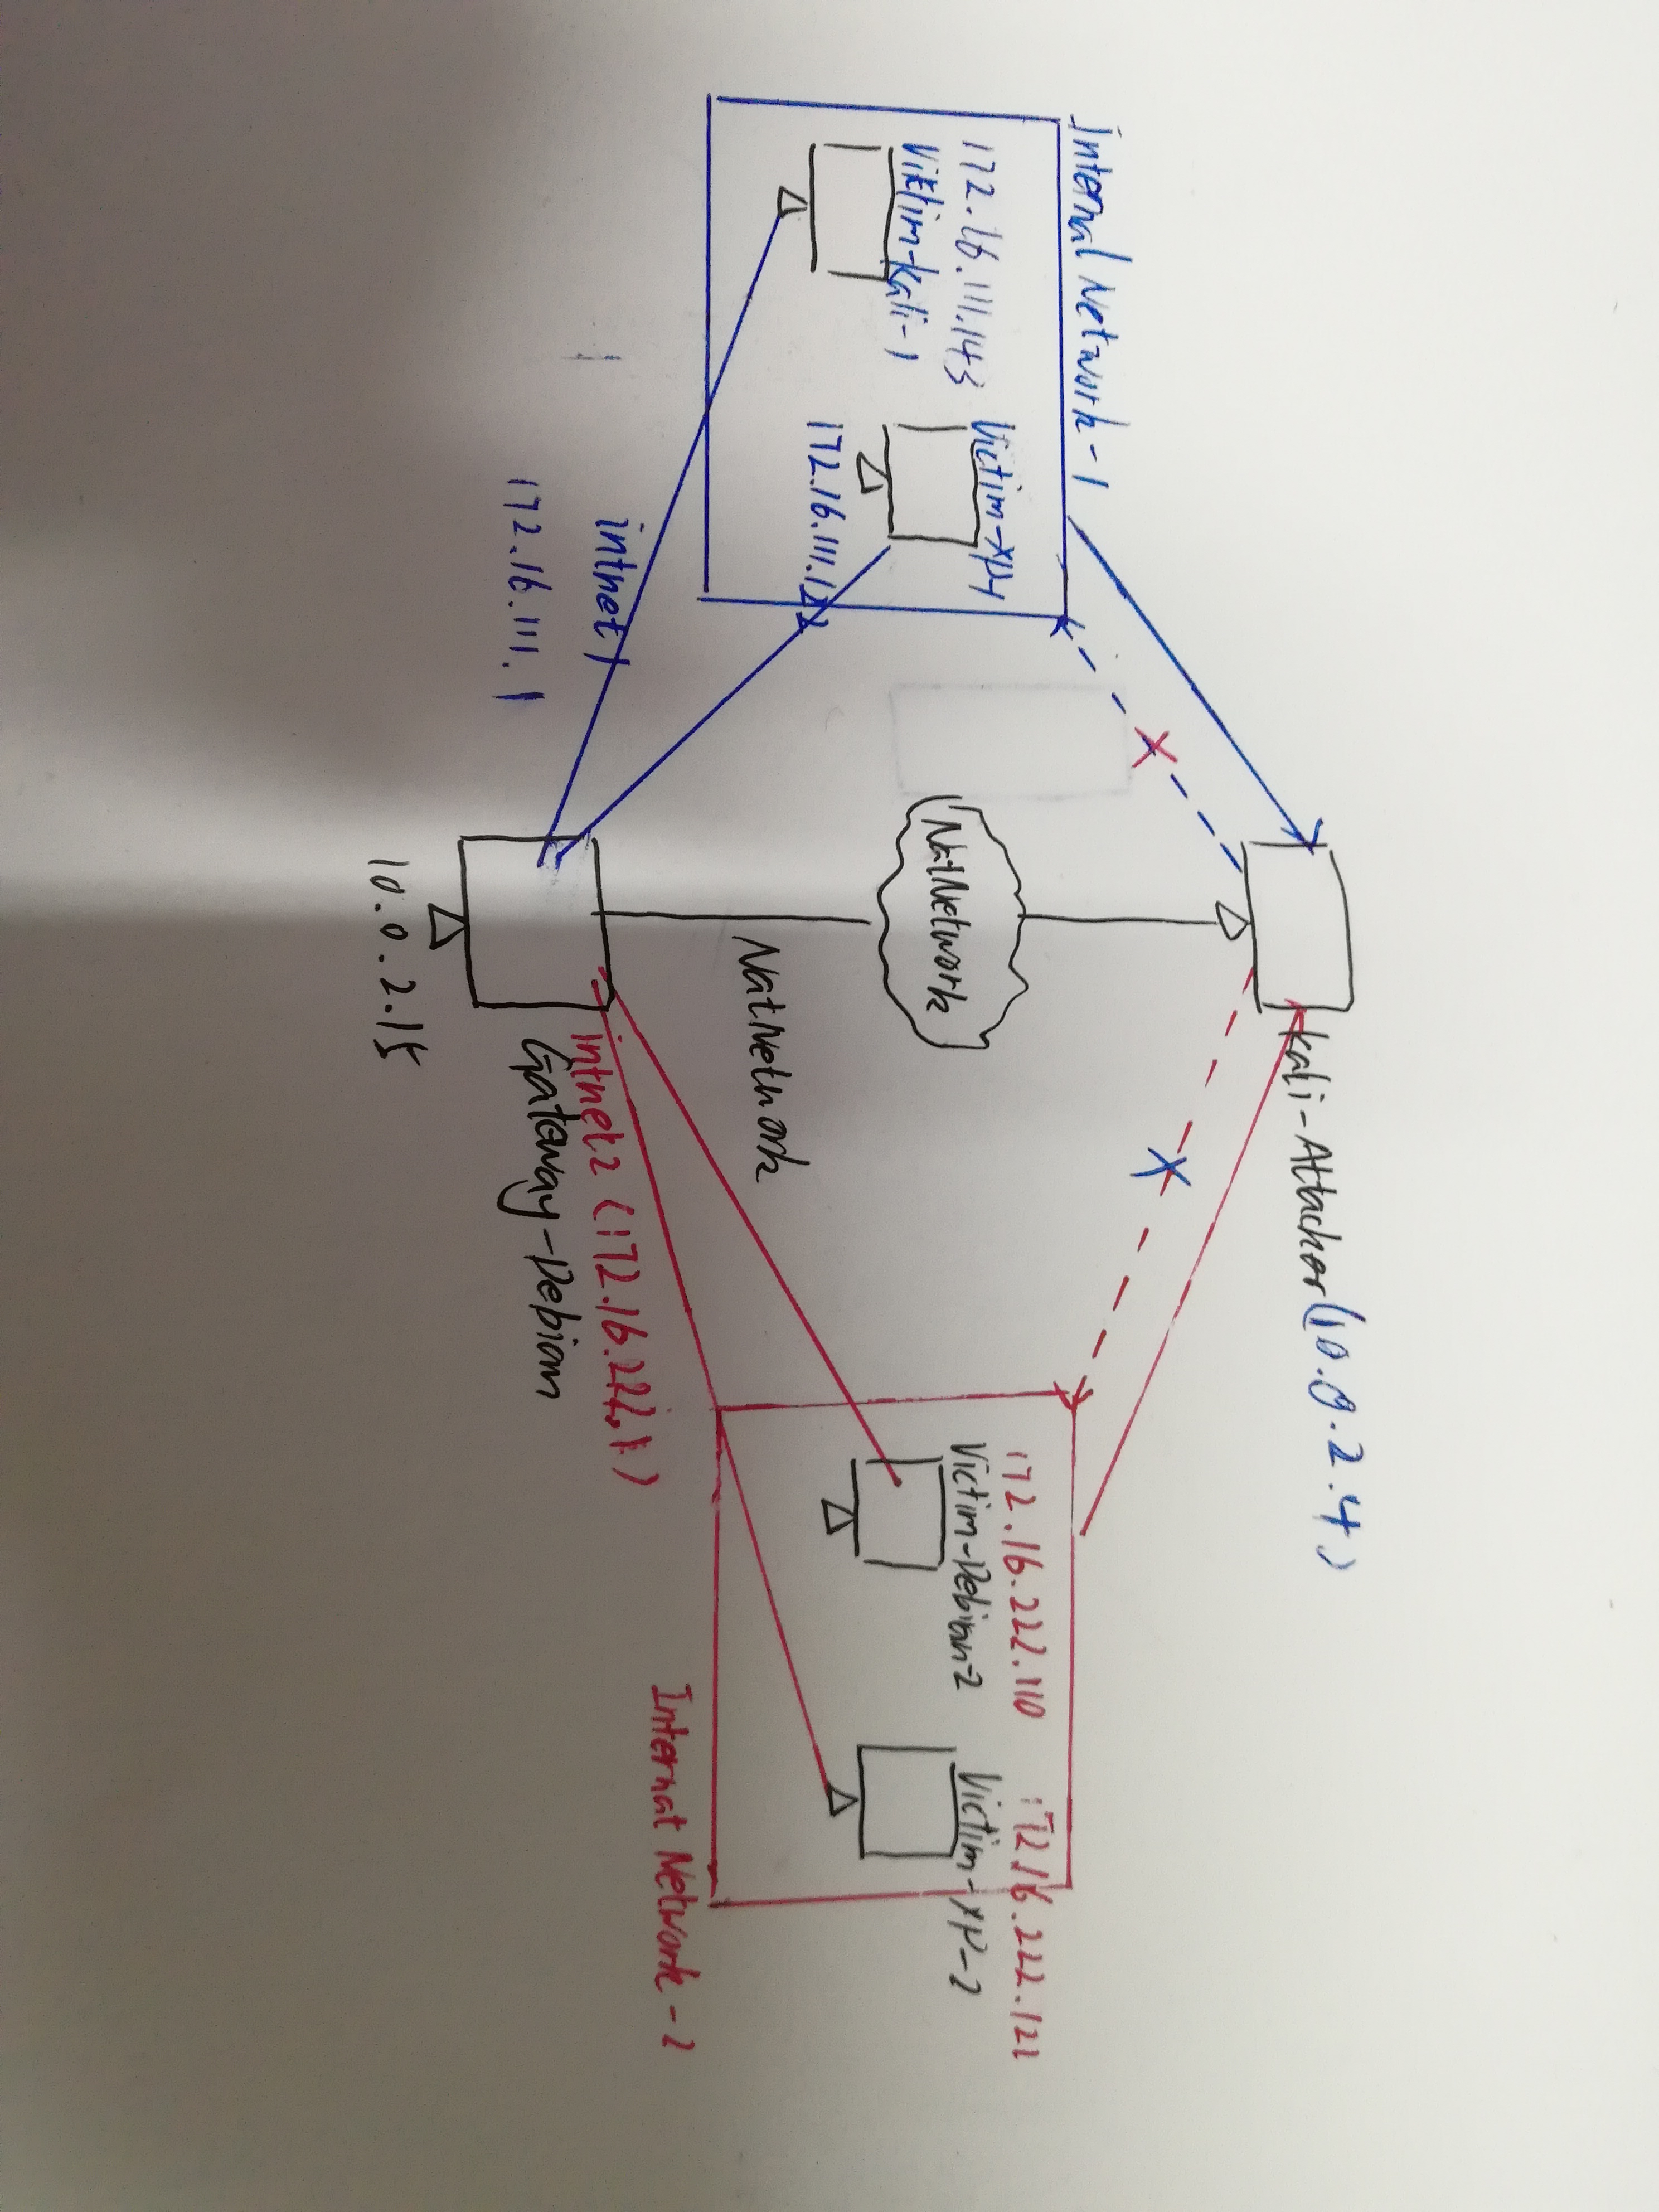 Kali-Attacker(10.0.2.4)
Internal Network-1
172.16.111.143
Victim-Kali-1
Victim-XP-1
172.16.111.122
NatNetwork
NatNetwork
172.16.222.110
Victim-Debian-2
172.16.222.122
Victim-XP-2
Internat Network-2
intnet1
172.16.111.1
intnet2 (172.16.222.1)
Gateway-Debian
10.0.2.15